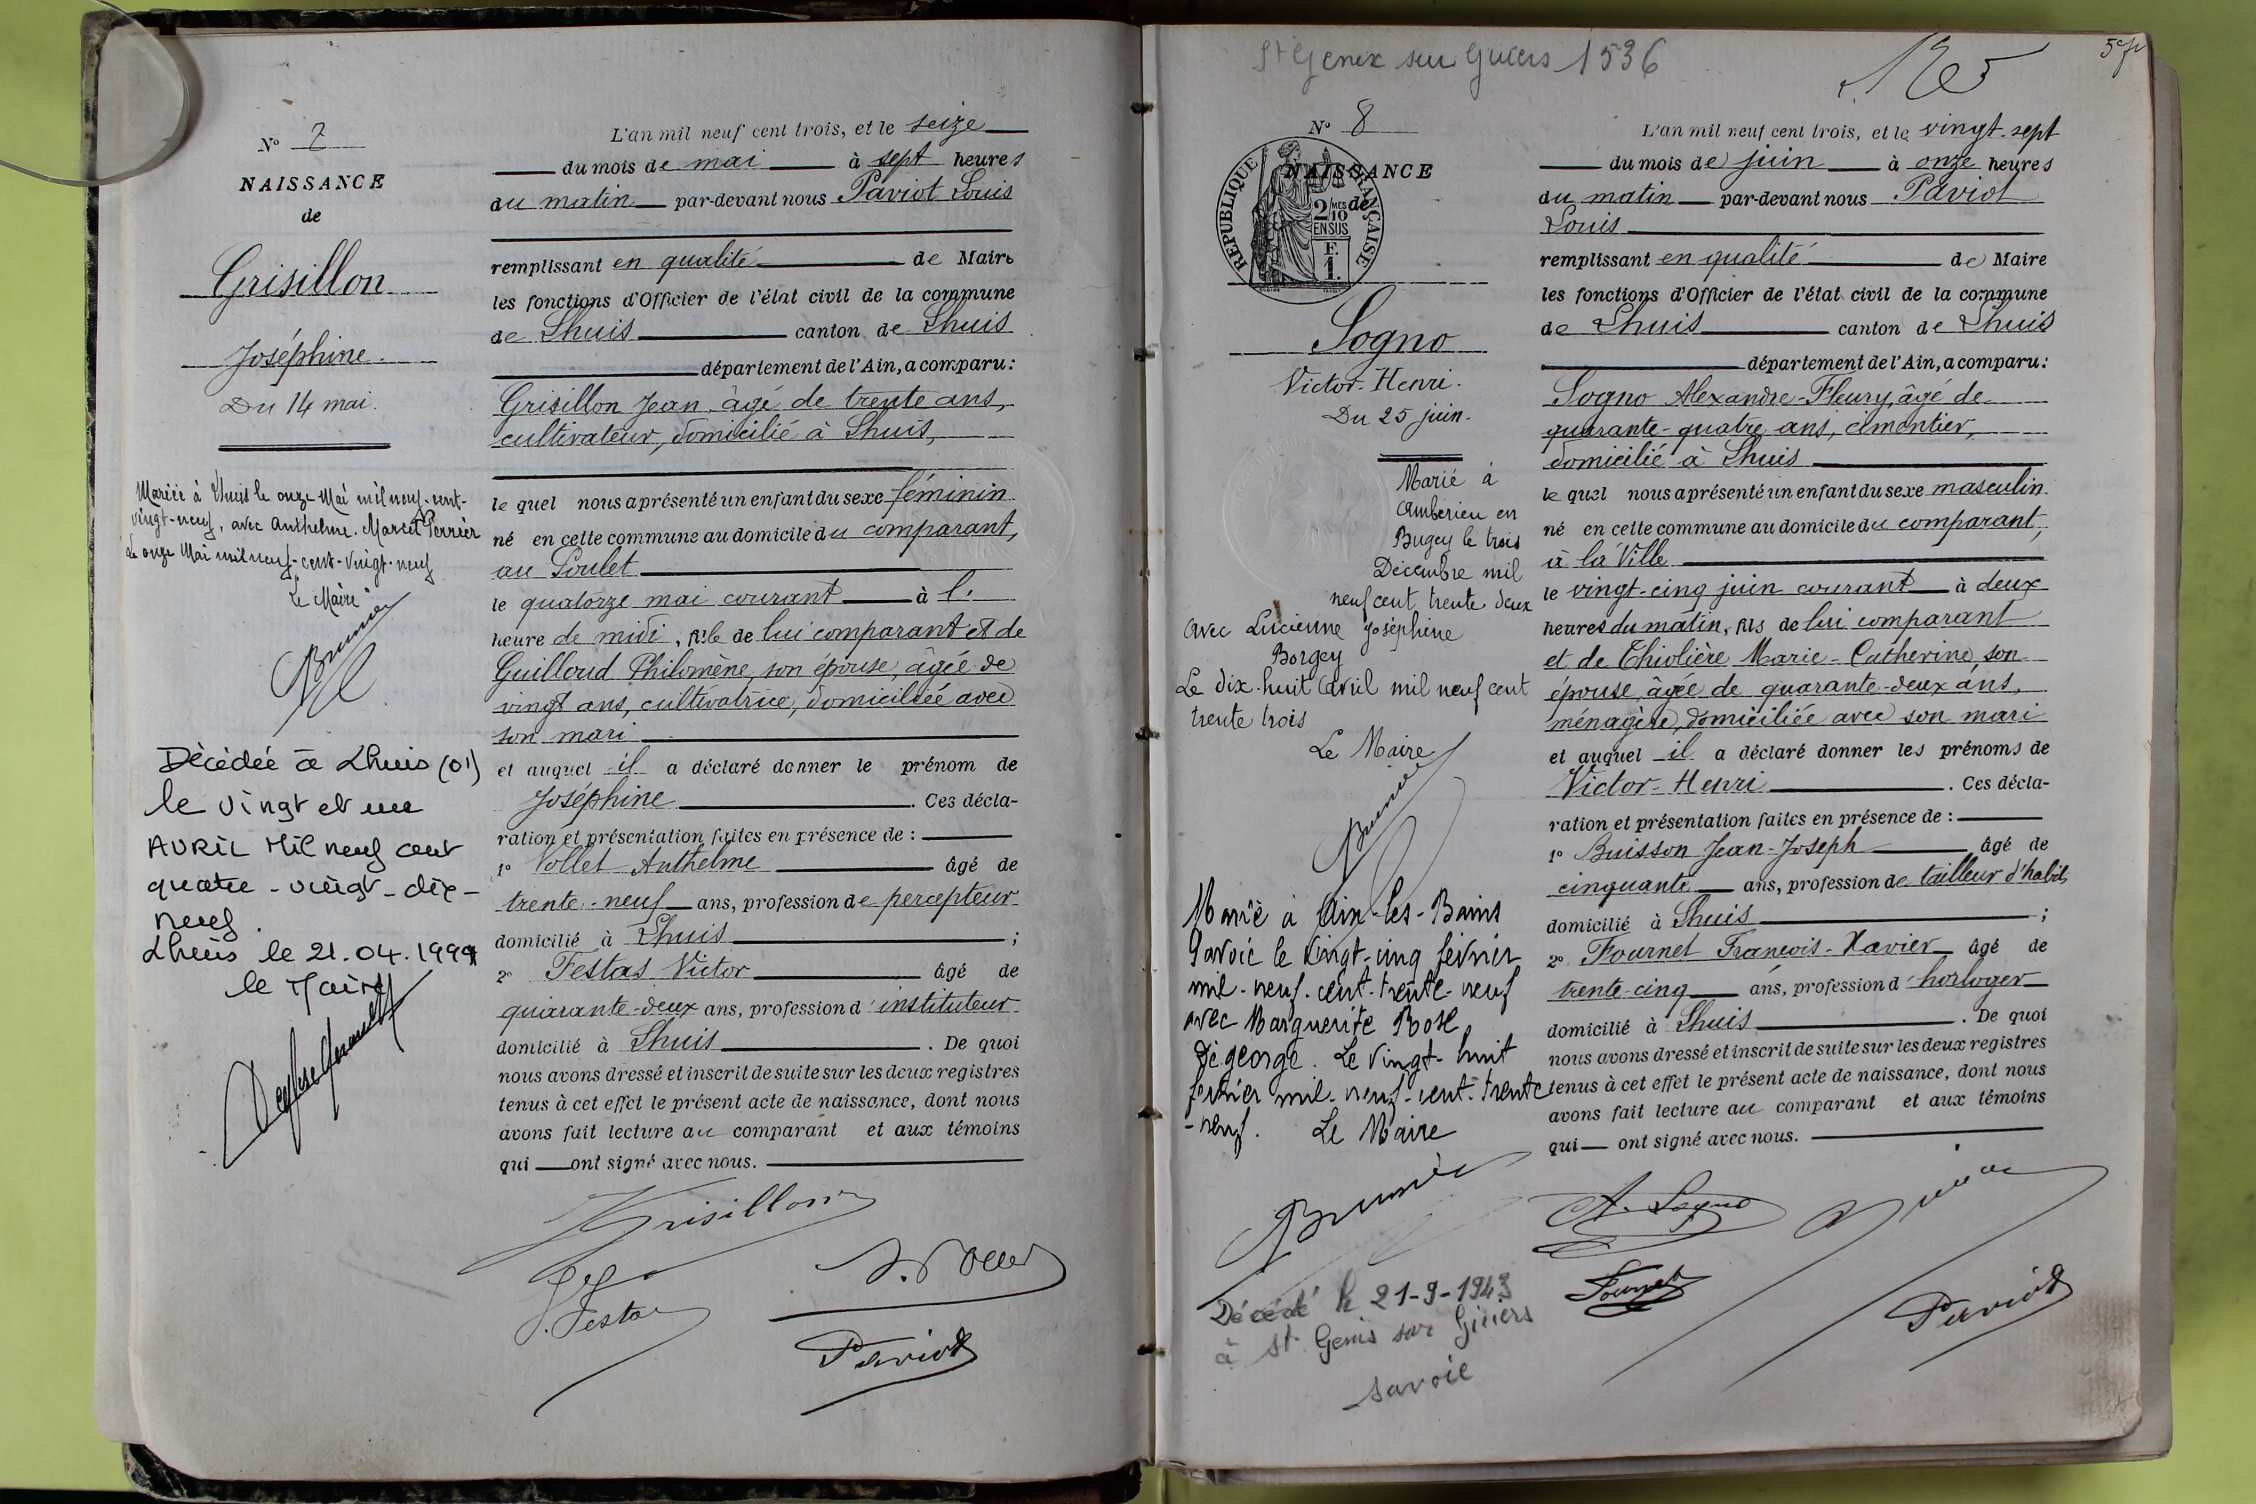 N° 7
NAISSANCE
de
Grisillon
Joséphine.
Du 14 mai.
Mariée à Lhuis le onze Mai mil neuf-cent-
vingt-neuf, avec Anthelme. Marcel Perrier
Le onze Mai mil neuf-cent-vingt-neuf
Le Maire
Brunier
Décédée à Lhuis (01)
le vingt et un
AVRIL Mil neuf cent
quatre-vingt-dix-
neuf.
Lhuis le 21.04.1999
le Maire
L'an mil neuf cent trois, et le seize
du mois de mai à sept heures
du matin par-devant nous Paviot Louis
remplissant en qualité de Maire
les fonctions d'Officier de l'état civil de la commune
de Lhuis canton de Lhuis
département de l'Ain, a comparu :
Grisillon Jean, âgé de trente ans,
cultivateur, domicilié à Lhuis,
le quel nous a présenté un enfant du sexe féminin
né en cette commune au domicile du comparant,
au Poulet
le quatorze mai courant à l.
heure de midi, fille de lui comparant et de
Guilloud Philomène, son épouse, âgée de
vingt ans, cultivatrice, domiciliée avec
son mari
et auquel il a déclaré donner le prénom de
Joséphine . Ces décla-
ration et présentation faites en présence de :
1° Vollet Anthelme âgé de
trente-neuf ans, profession de percepteur
domicilié à Lhuis ;
2° Festas Victor âgé de
quarante-deux ans, profession d'instituteur
domicilié à Lhuis . De quoi
nous avons dressé et inscrit de suite sur les deux registres
tenus à cet effet le présent acte de naissance, dont nous
avons fait lecture au comparant et aux témoins
qui ont signé avec nous.
Grisillon
A. Vollet
V. Festas
Paviot
St Genix sur Guiers 1536
5e f
N° 8
NAISSANCE
de
RÉPUBLIQUE FRANÇAISE
2/10 MES
EN SUS
F.
1.
Sogno
Victor-Henri.
Du 25 juin.
Marié à
Ambérieu en
Bugey le trois
Décembre mil
neuf cent trente deux
avec Lucienne Joséphine
Borgey
Le dix-huit avril mil neuf cent
trente trois
Le Maire
Brunier
Marié à Aix-les-Bains
Savoie le vingt-cinq février
mil-neuf-cent-trente-neuf
avec Marguerite Rose
Dégeorge. Le vingt-huit
février mil-neuf-cent-trente
-neuf. Le Maire
Brunier
Décédé le 21-9-1943
à St Genis sur Guiers
Savoie
L'an mil neuf cent trois, et le vingt-sept
du mois de juin à onze heures
du matin par-devant nous Paviot
Louis
remplissant en qualité de Maire
les fonctions d'Officier de l'état civil de la commune
de Lhuis canton de Lhuis
département de l'Ain, a comparu :
Sogno Alexandre-Fleury, âgé de
quarante-quatre ans, cimentier,
domicilié à Lhuis
le quel nous a présenté un enfant du sexe masculin
né en cette commune au domicile du comparant,
à la Ville
le vingt-cinq juin courant à deux
heures du matin, fils de lui comparant
et de Thiolière Marie-Catherine, son
épouse, âgée de quarante-deux ans,
ménagère, domiciliée avec son mari
et auquel il a déclaré donner les prénoms de
Victor-Henri . Ces décla-
ration et présentation faites en présence de :
1° Buisson Jean-Joseph âgé de
cinquante ans, profession de tailleur d'habits
domicilié à Lhuis ;
2° Fournet François-Xavier âgé de
trente-cinq ans, profession d'horloger
domicilié à Lhuis . De quoi
nous avons dressé et inscrit de suite sur les deux registres
tenus à cet effet le présent acte de naissance, dont nous
avons fait lecture au comparant et aux témoins
qui ont signé avec nous.
A. Sogno
Fournet
Paviot